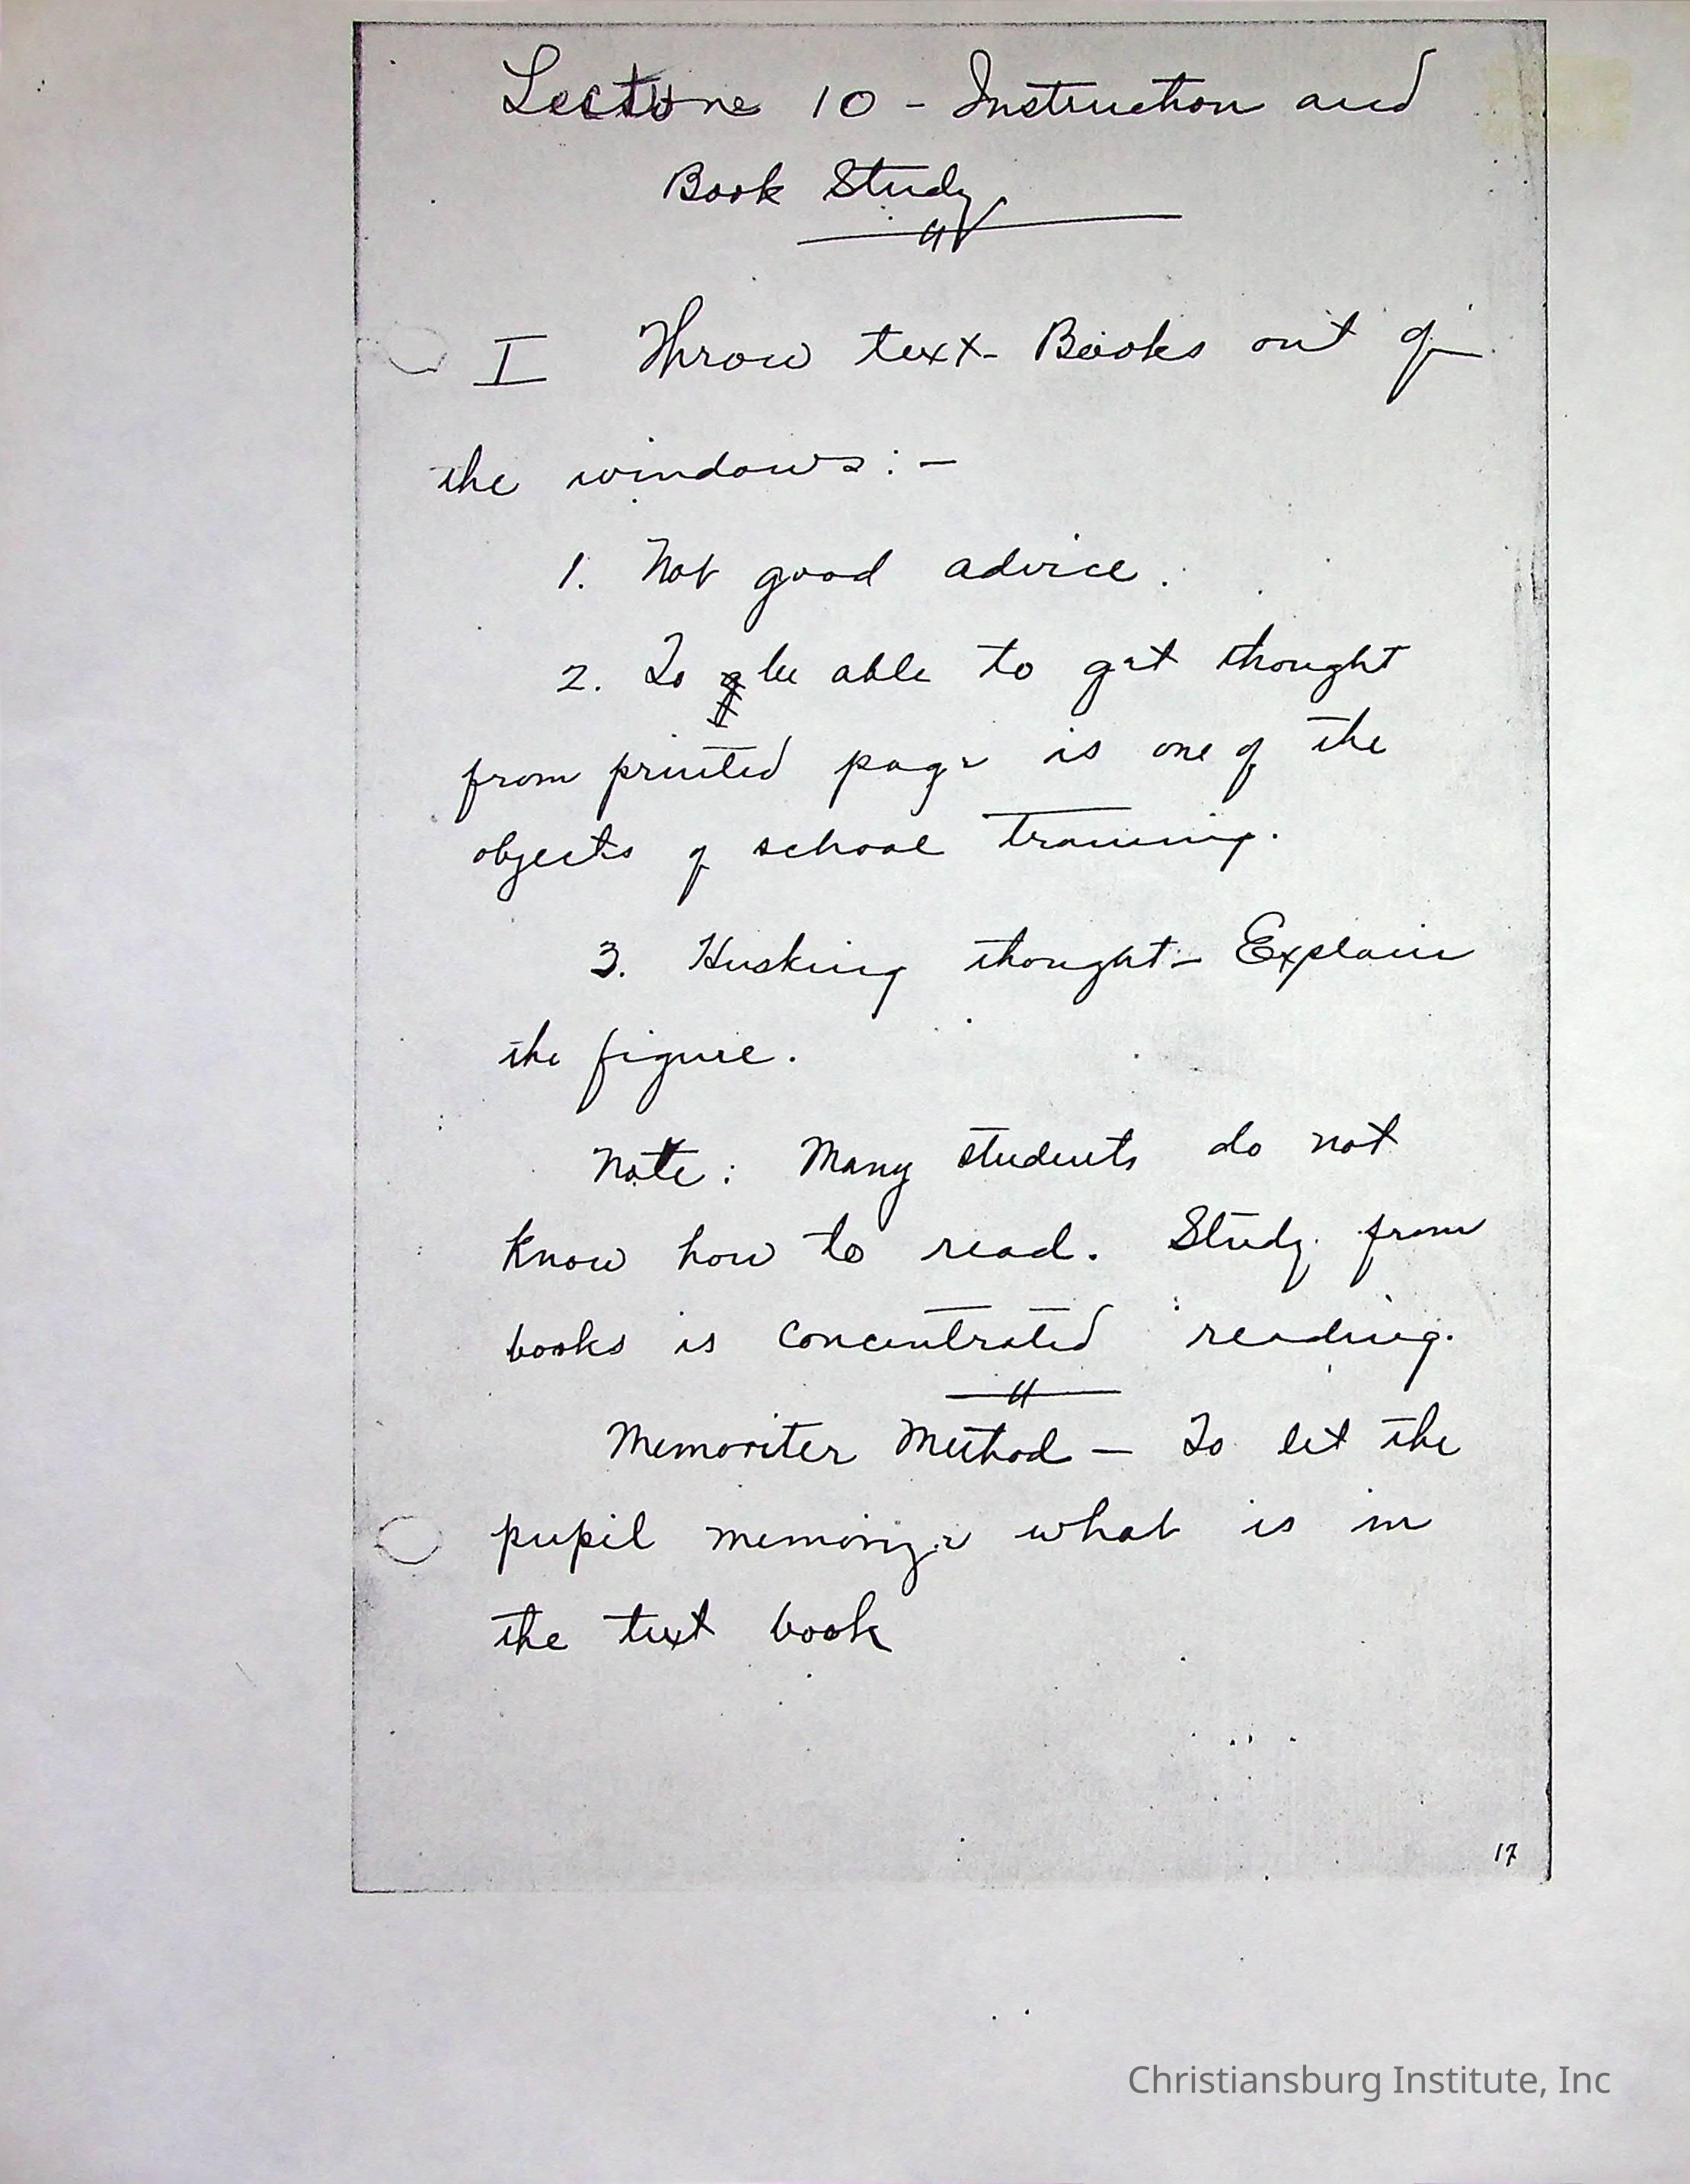 Lecture 10 - Instruction and
Book Study
I Throw text-Books out of
the windows:-
1. Not good advice.
2. To be able to get thought
from printed page is one of the
objects of school training.
3. Husking thought - Explain
the figure.
Note: Many students do not
know how to read. Study from
books is concentrated reading.
Memoriter Method - To let the
pupil memorize what is in
the text book
17
Christiansburg Institute, Inc